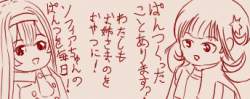 ぱんつくった
ことあります?
わたしも
お姉さまのを
おやつに!
ソフィアちゃんの
ぱんつを毎日!